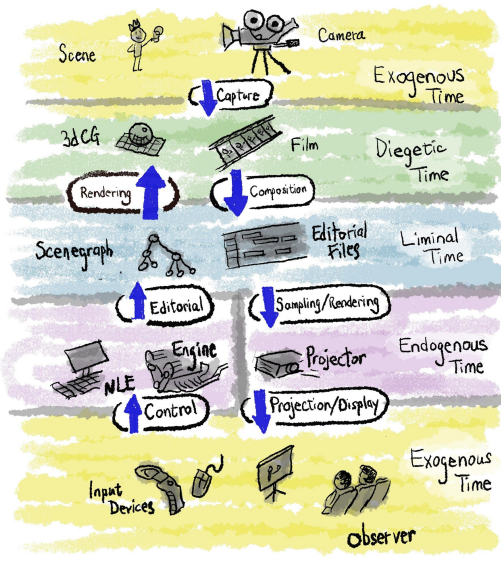 Scene
Camera
Exogenous
Time
Capture
3dCG
Film
Diegetic
Time
Rendering
Composition
Scenegraph
Editorial
Files
Liminal
Time
Editorial
Sampling/Rendering
NLE
Engine
Projector
Endogenous
Time
Control
Projection/Display
Input
Devices
Exogenous
Time
Observer